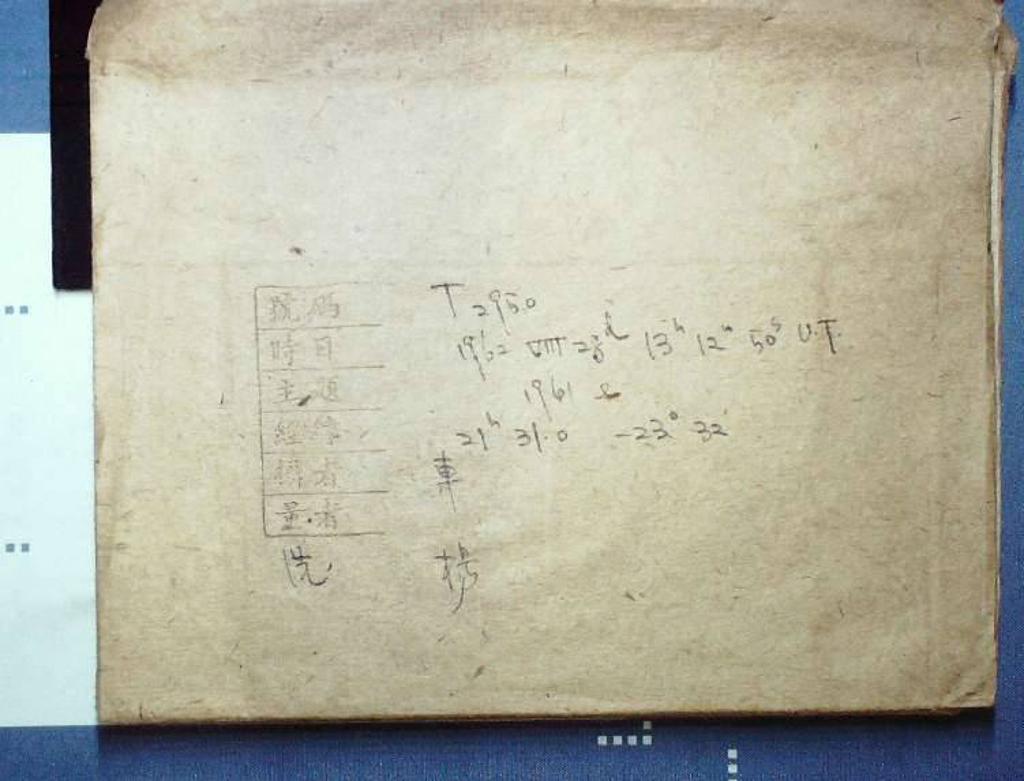 號碼 T 2950
時日 1962 VIII 28d 13h 12m 50s U.T.
主題 1961
經緯 21h 31.0 -23° 32
攝者 車
量者
洗 楊